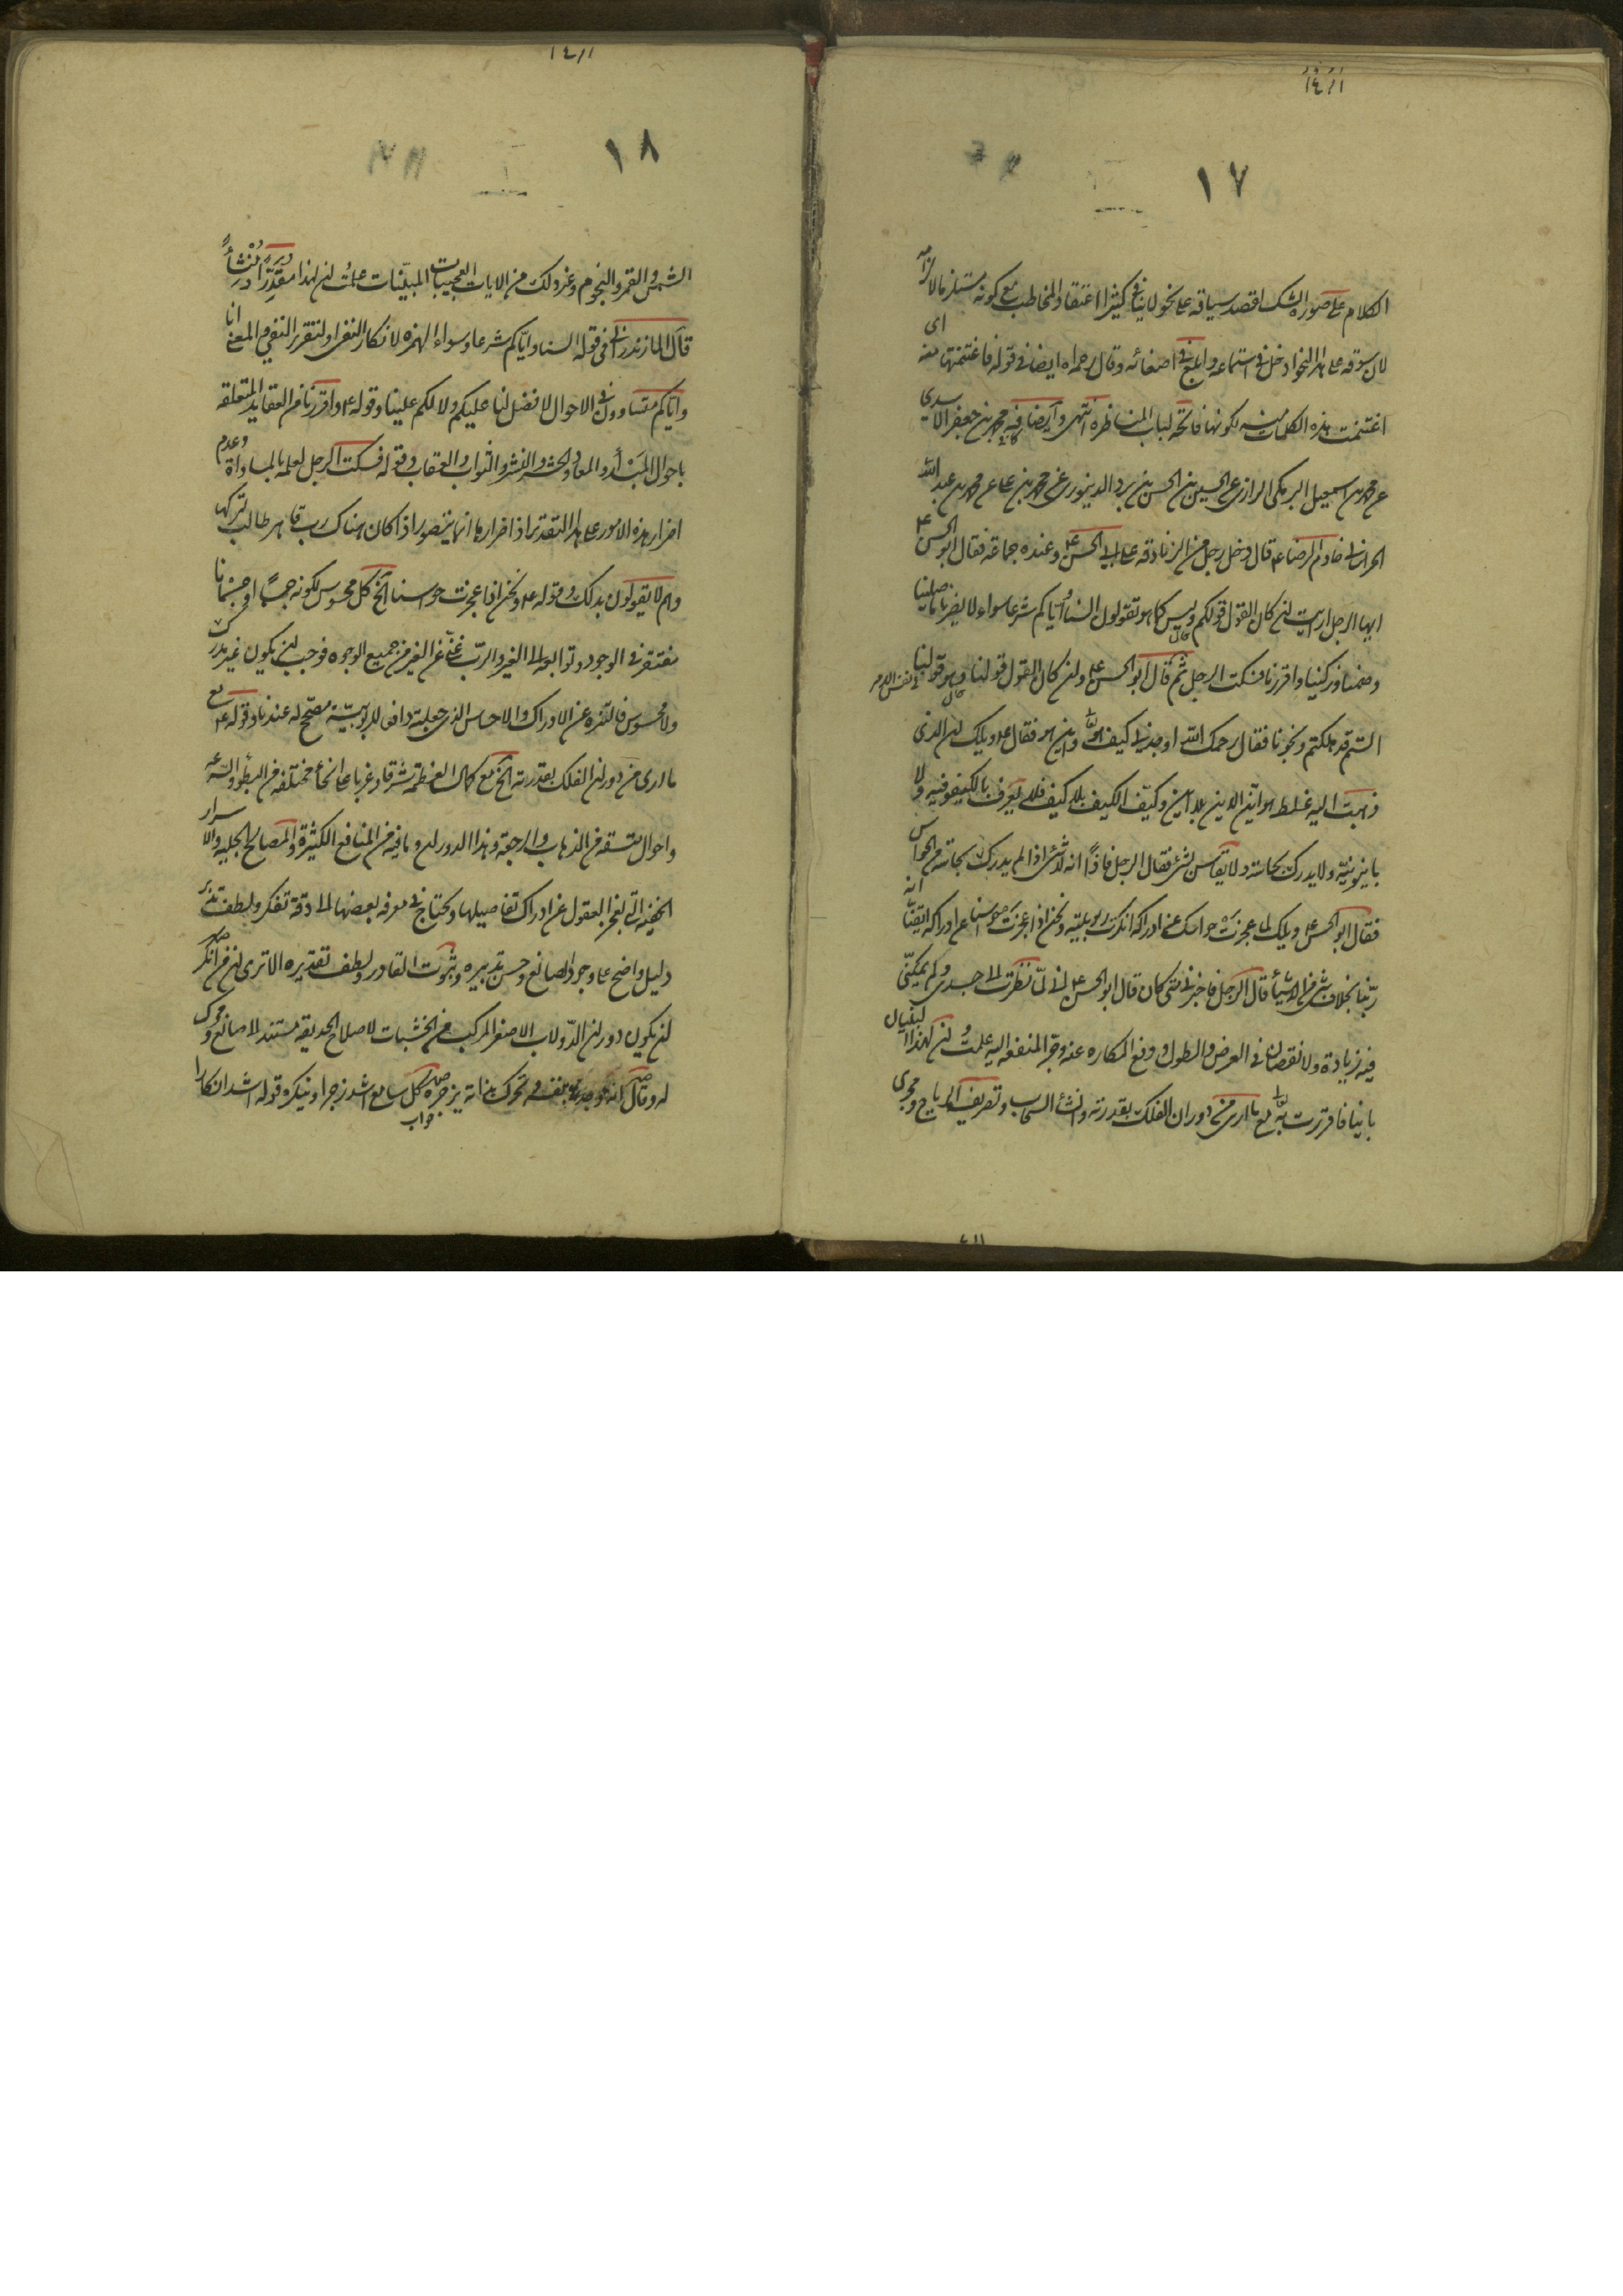 ١٧
الكلام على صورة الشك اقصد سياقه على نحو لا ينافى كثيرا اعتقاد المخاطب مع كونه مستلزما لالزامه
لان سوقه على هذا النحو ادخل فى استماعه وابلغ فى اصغائه وقال رحمه الله ايضا فى قوله فاغتنمتها منه اى
اغتنمت هذه الكلمات منه لكونها فاتحة لباب المناظرة انتهى وايضا فيه محمد بن جعفر الاسدى
عن محمد بن اسمعيل البرمكى الرازى عن الحسين بن الحسن بن برد الدينورى عن محمد بن على عن محمد بن عبد الله
الخراسانى خادم الرضا ع قال دخل رجل من الزنادقة على ابى الحسن ع وعنده جماعة فقال ابو الحسن ع
ايها الرجل ارايت لن كان القول قولكم وليس كما هو تقولون السنا واياكم شرعا سواء لا يضرنا ما صلينا
وصمنا وزكينا واقررنا فسكت الرجل ثم قال ابو الحسن ع ولن كان القول قولنا وهو قولنا
الستم قد هلكتم ونجونا فقال رحمك الله اوجدنى كيف هو واين هو فقال ع ويلك لن الذى
ذهبت اليه غلط هو اين الاين بلا اين وكيف الكيف بلا كيف فلا يعرف بالكيفوفية ولا
باينونية ولا يدرك بحاسة ولا يقاس بشئ فقال الرجل فاذًا انه لا شئ اذا لم يدرك بحاسة من الحواس
فقال ابو الحسن ع ويلك لما عجزت حواسك عن ادراكه انكرت ربوبيته ونحن اذا عجزت حواسنا عن ادراكه ايقنا انه
ربنا بخلاف شئ من الاشياء قال الرجل فاخبرنى متى كان قال ابو الحسن ع انى لما نظرت الى جسدى ولم يمكنى
فيه زيادة ولا نقصان فى العرض والطول ودفع المكاره عنه وجر المنفعة اليه علمت لن لهذا البنيان
بانيا فاقررت به مع ما ارى من دوران الفلك بقدرته وانشاء السحاب وتصريف الرياح ومجرى
١٨
الشمس والقمر والنجوم وغير ذلك من الايات العجيبات المبينات علمت لن لهذا مقدرا ومنشأ
قال المازندرانى فى قوله السنا واياكم شرعا وسواء الهمزة لانكار النفى او لتقرير النفى والمعنى انا
واياكم متساوون فى الاحوال لا فضل لنا عليكم ولا لكم علينا وقوله ع واقررنا من العقايد المتعلقة
باحوال المبدأ والمعاد والحشر والنشر والثواب والعقاب وقوله فسكت الرجل لعلمه بالمساواة وعدم
اضرار هذه الامور على هذا التقدير اذ اضرارها انما يتصور اذا كان هناك رب قاهر طالب لتركها
وهم لا يقولون بذلك وقوله ع ونحن اذا عجزت حواسنا الخ كل محسوس لكونه جسمًا او جسمانيا
مفتقر فى الوجود وتوابعه الى الغير والرب غنى عن الغير من جميع الوجوه فوجب لن يكون غير مدرك
ولا محسوس فالتنزه عن الادراك والاحساس الذى جعلته دافعا للربوبية مصحح له عندنا وقوله ع مع
ما ارى من دوران الفلك بقدرته الخ مع كمال العظمة شرقا وغربا على انحاء مختلفة من البطؤ والسرعة
واحوال متسقة من الذهاب والرجعة وهذا الدوران وما فيه من المنافع الكثيرة والمصالح الجلية والاسرار
الخفية التى تعجز العقول عن ادراك تفاصيلها ويحتاج فى معرفة بعضها الى دقة تفكر ولطف تدبر
دليل واضح على وجود الصانع وحسن تدبيره وثبوت القادر ولطف تقديره الا ترى لن من انكر
لن يكون دوران الدولاب الاصغر المركب من الخشبات لاصلاح الحديقة مستندا لا صانع ومحرك
له وقال انه وجد بنفسه وتحرك بذاته يزجره كل سامع اشد زجرا وينكره قوله اشد انكارا